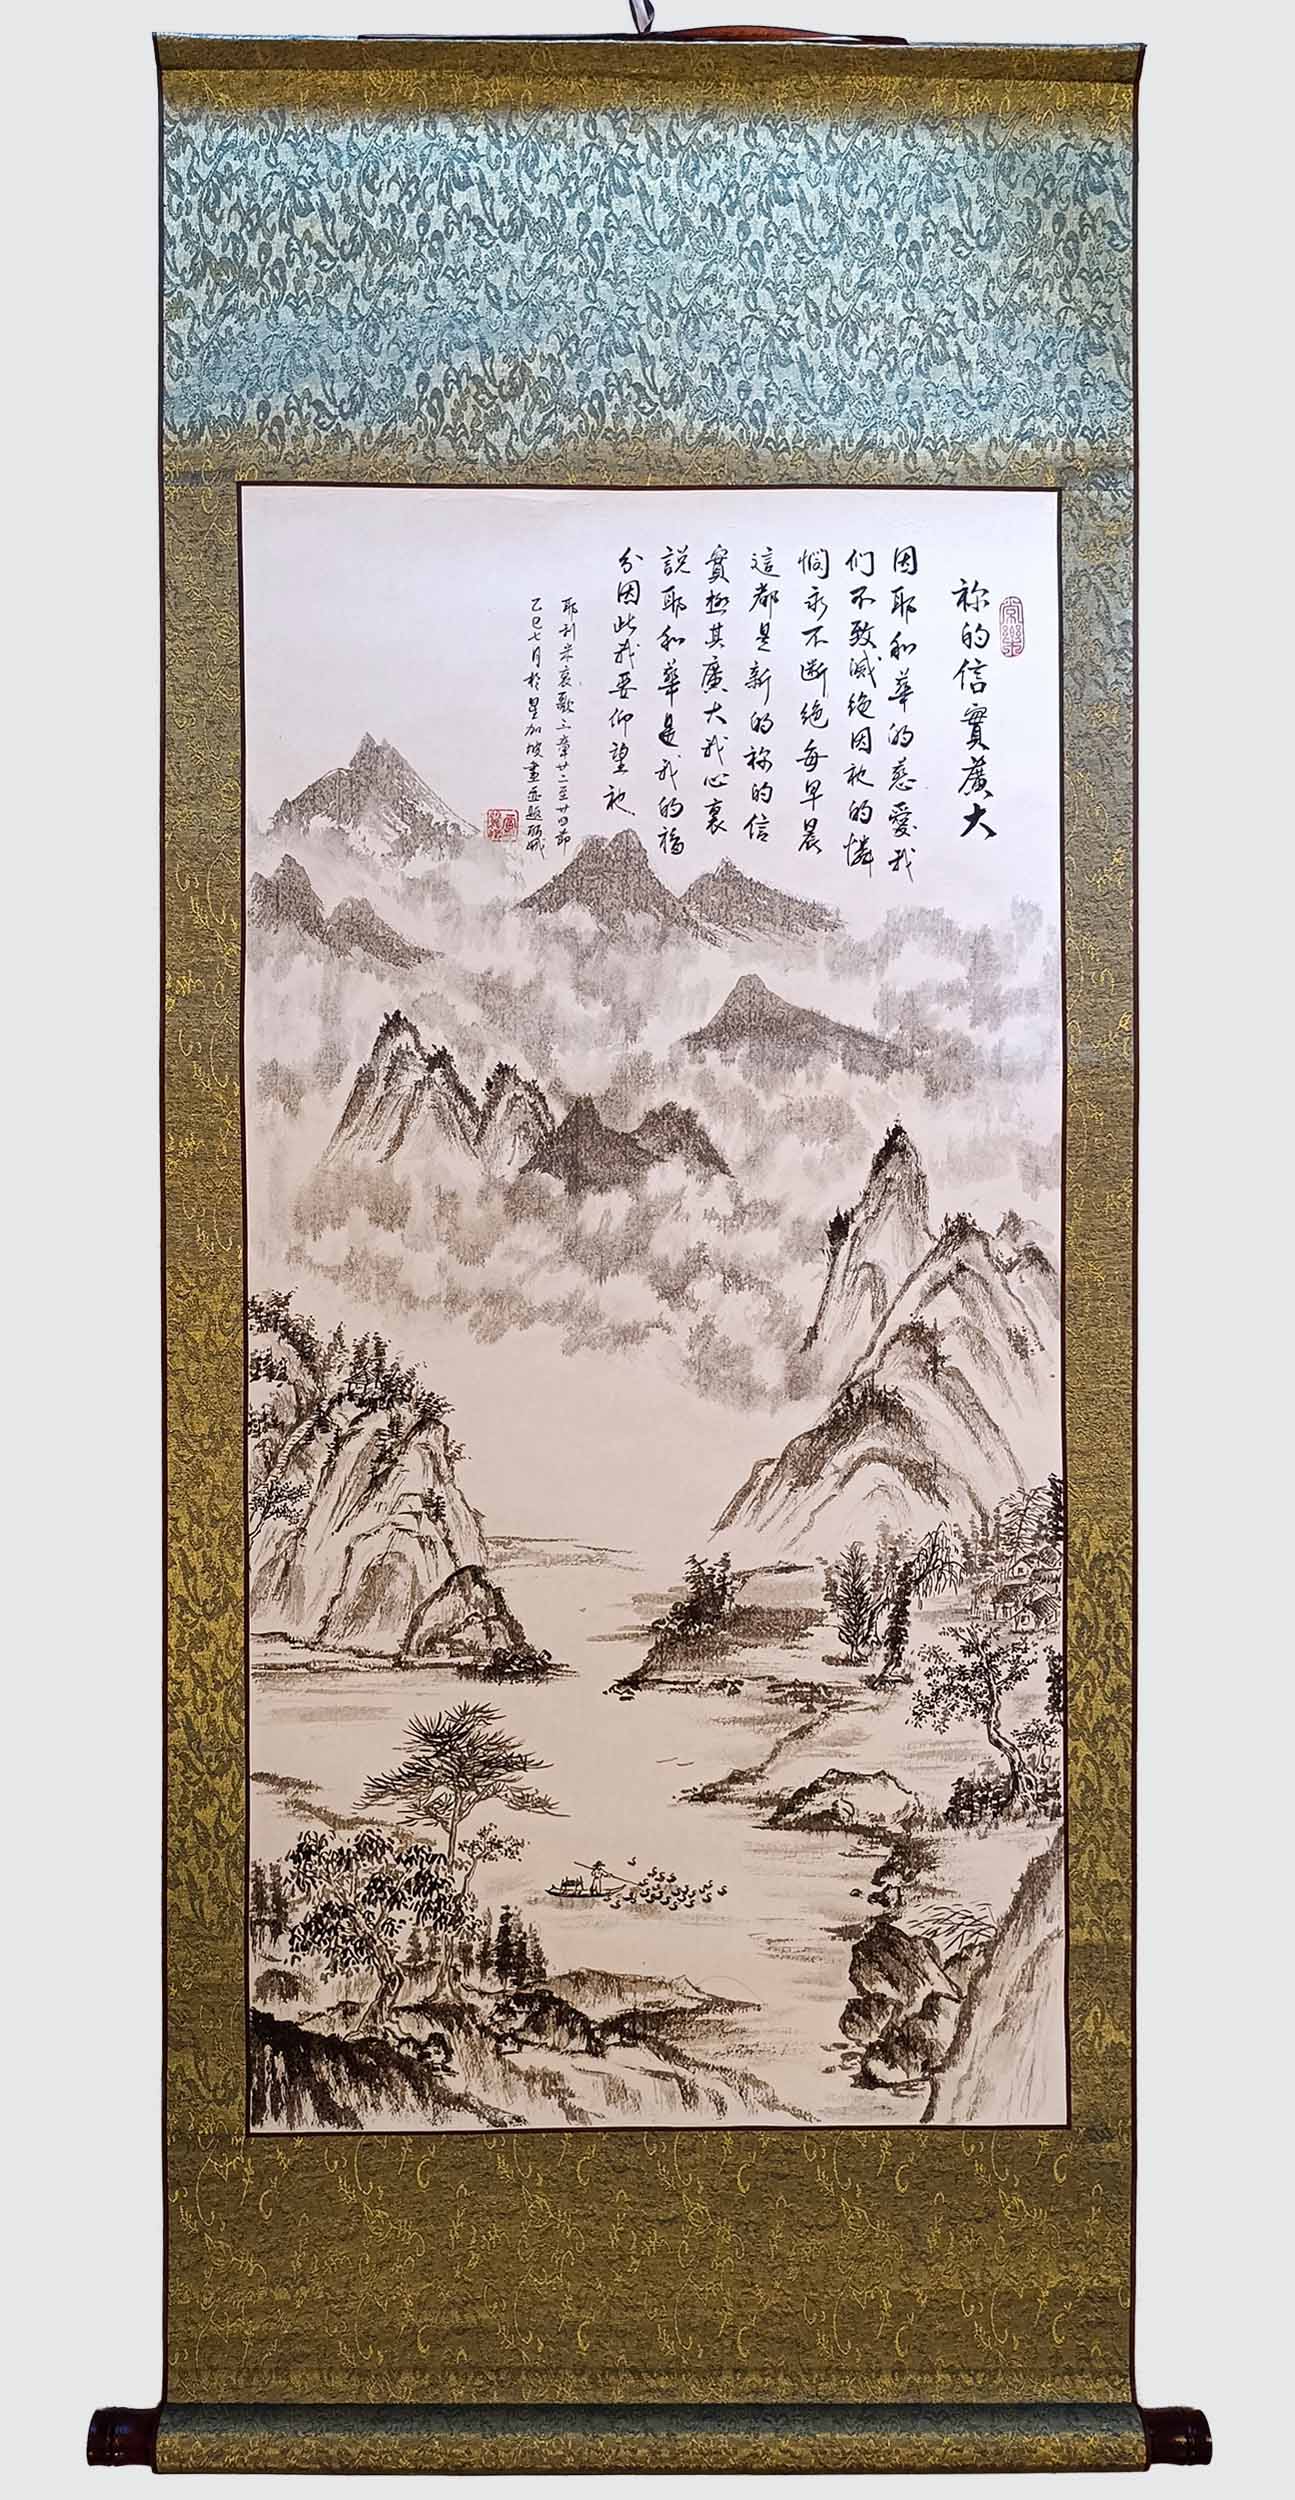 常樂
祢的信實廣大
因耶和華的慈愛我
们不致滅絶因祂的憐
憫永不斷絶每早晨
這都是新的祢的信
實極其廣大我心裏
說耶和華是我的福
分因此我要仰望祂
耶利米哀歌三章廿二至廿四節
乙巳七月於星加坡畫並題